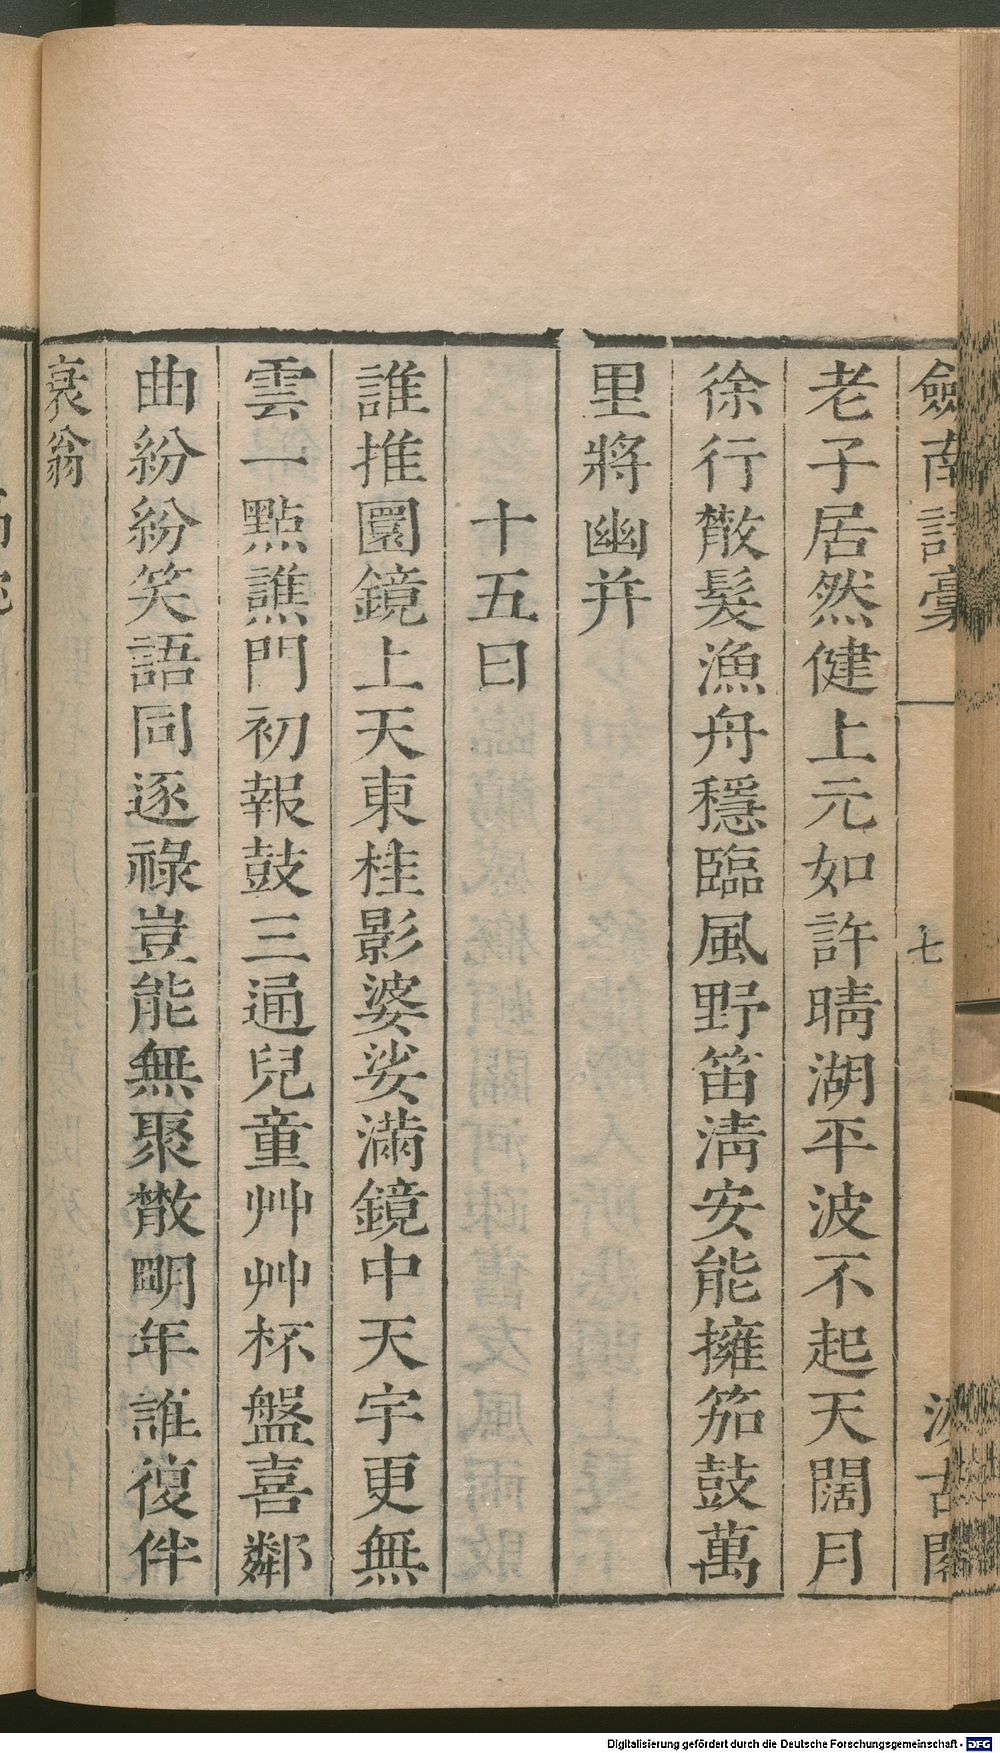 劒南詩稾
七
汲古閣
老子居然健上元如許晴湖平波不起天闊月
徐行散髮漁舟穩臨風野笛淸安能擁笳鼓萬
里將幽并
十五日
誰推圓鏡上天東桂影婆娑滿鏡中天宇更無
雲一點譙門初報鼓三通兒童艸艸杯盤喜鄰
曲紛紛笑語同逐祿豈能無聚散明年誰復伴
衰翁
Digitalisierung gefördert durch die Deutsche Forschungsgemeinschaft - DFG